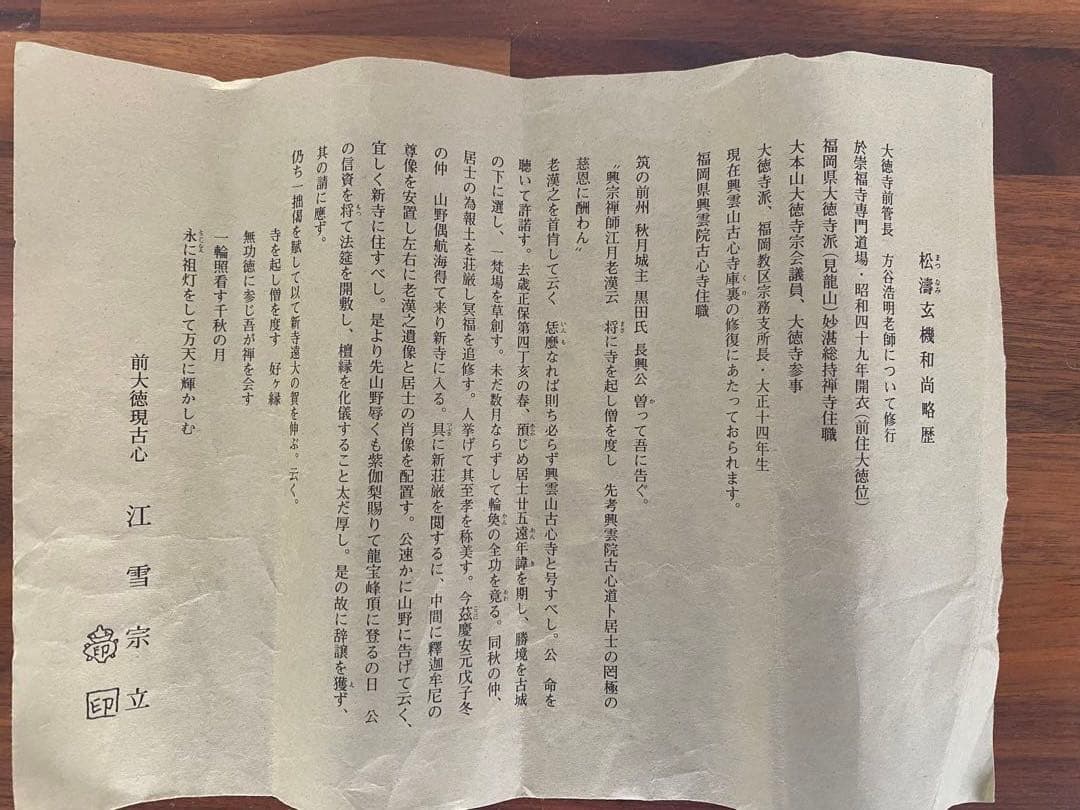 松濤玄機和尚略歴
大徳寺前管長 方谷浩明老師について修行
於崇福寺専門道場・昭和四十九年開衣(前住大徳位)
福岡県大徳寺派(見龍山)妙湛総持禅寺住職
大本山大徳寺宗会議員、大徳寺参事
大徳寺派、福岡教区宗務支所長・大正十四年生
現在興雲山古心寺庫裏の修復にあたっておられます。
福岡県興雲院古心寺住職
筑の前州 秋月城主 黒田氏 長興公 曽って吾に告ぐ。
〝興宗禅師江月老漢云 将に寺を起し僧を度し 先考興雲院古心道卜居士の罔極の
慈恩に酬わん〟
老漢之を首肯して云く 恁麼なれば則ち必らず興雲山古心寺と号すべし。公 命を
聴いて許諾す。去歳正保第四丁亥の春、預じめ居士廿五遠年諱を期し、勝境を古城
の下に選し、一梵場を草創す。未だ数月ならずして輪奐の全功を竟る。同秋の仲、
居士の為報土を荘厳し冥福を追修す。人挙げて其至孝を称美す。今茲慶安元戊子冬
の仲 山野偶航海得て来り新寺に入る。具に新荘厳を閲するに、中間に釋迦牟尼の
尊像を安置し左右に老漢之遺像と居士の肖像を配置す。公速かに山野に告げて云く、
宜しく新寺に住すべし。是より先山野辱くも紫伽梨賜りて龍宝峰頂に登るの日 公
の信資を将て法筵を開敷し、檀縁を化儀すること太だ厚し。是の故に辞譲を獲ず、
其の請に應ず。
仍ち一拙偈を賦して以て新寺遠大の賀を伸ぶ。云く。
寺を起し僧を度す 好ヶ縁
無功徳に参じ吾が禅を会す
一輪照看す千秋の月
永に祖灯をして万天に輝かしむ
前大徳現古心 江雪宗立
印